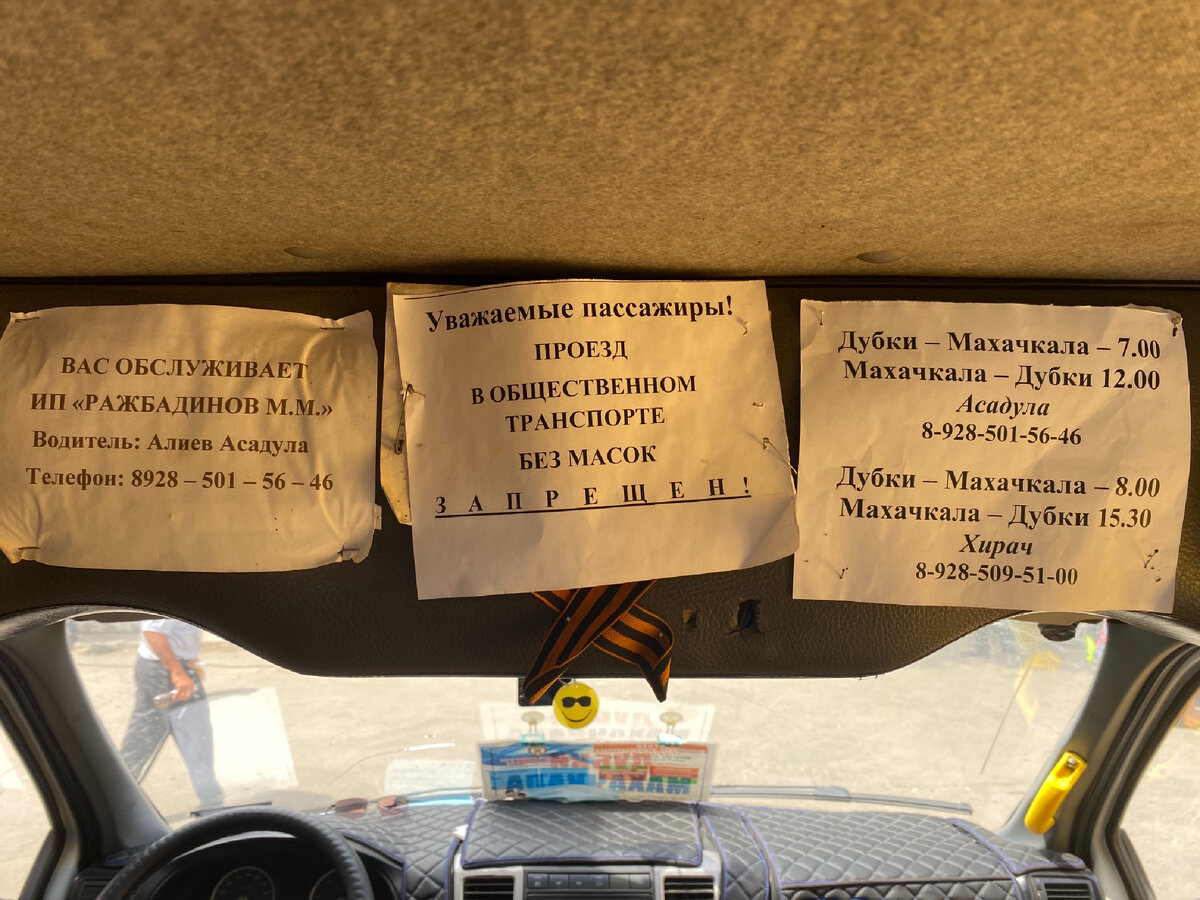 ВАС ОБСЛУЖИВАЕТ
ИП «РАЖБАДИНОВ М.М.»
Водитель: Алиев Асадула
Телефон: 8928 – 501 – 56 – 46
Уважаемые пассажиры!
ПРОЕЗД
В ОБЩЕСТВЕННОМ
ТРАНСПОРТЕ
БЕЗ МАСОК
З А П Р Е Щ Е Н !
Дубки – Махачкала – 7.00
Махачкала – Дубки 12.00
Асадула
8-928-501-56-46
Дубки – Махачкала – 8.00
Махачкала – Дубки 15.30
Хирач
8-928-509-51-00